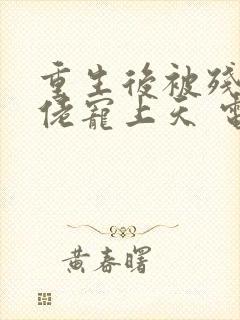 重生後被殘
佬寵上天
黃春曙